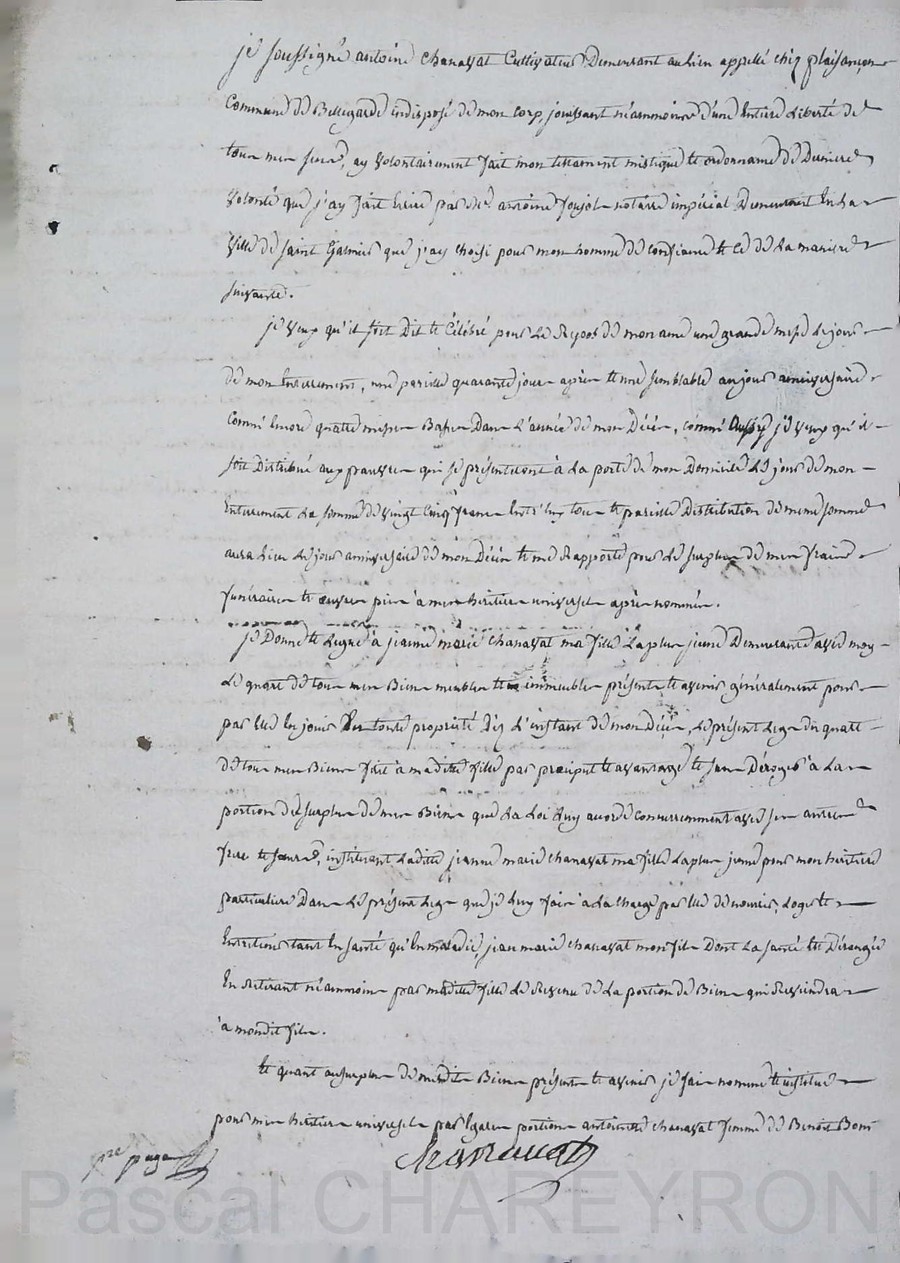 je soussigné antoine chanavat Cultivateur Demeurant au lieu appellé chez plaisançon
Commune de Bellegarde indisposé de mon corp, jouissant néammoins d'une Entiere Liberté de
tous mes sens, ay volontairement fait mon testament mistique et ordonnance de Derniere
Volonté que j'ay fait Ecrire par Me antoine notaire impérial Demeurant En la
Ville de Saint Galmier que j'ay choisi pour mon homme de confiance et ce de La maniere
suivante.
je veux qu'il soit Dit et Célébré pour Le Repos de mon ame une grande messe Le jour
de mon Enterrement, une pareille quarante jours après et une semblable au jour anniversaire
Comme Encore quatre messes Basses Dans L'année de mon Décès, comme Aussy je veux qu'il
soit Distribué aux pauvres qui se présenteront à La porte de mon Domicile Le jour de mon
Enterrement La somme de vingt Cinq francs Entr'Eux tous et pareille Distribution de meme somme
aura Lieu Le jour anniversaire de mon Décès et me Rapporte pour Le surplus de mes fraix
funéraires et œuvres pies à mes héritiers universels après nommés.
je Donne et Legue à jeanne marie chanavat ma fille La plus jeune Demeurante avec moy
Le quart de tous mes Biens meubles et immeubles présents et avenir généralement pour
par Elle En jouir En toute propriété Dez L'instant de mon Décès, Le présent Legs du quart
de tous mes Biens fait à madite fille par préciput et avantage et sans Déroger à La
portion de surplus de mes Biens que La Loi Luy accorde concurremment avec ses autres
frere et sœurs, instituant Ladite jeanne marie chanavat ma fille La plus jeune pour mon héritiere
particuliere Dans Le présent Legs que je Luy fais à La Charge par Elle de nourrir, Loger et
Entretenir tant En santé qu'En maladie, jean marie chanavat mon fils Dont La santé Est Dérangée
En Retirant néammoins par madite fille Le Revenu de La portion de Biens qui Reviendra
à mondit fils.
Et quant au surplus de mesdits Biens présents et avenir je fais nomme et institue
pour mes héritiers universels par Egales portions antoinette chanavat femme de Benoit Bon
pre page chanavat
Pascal CHAREYRON